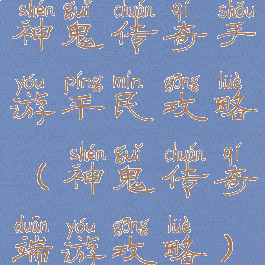 shén guǐ chuán qí shǒu
神鬼传奇手
yóu píng mín gōng lüè
游平民攻略
shén guǐ chuán qí
（神鬼传奇
duān yóu gōng lüè
端游攻略）